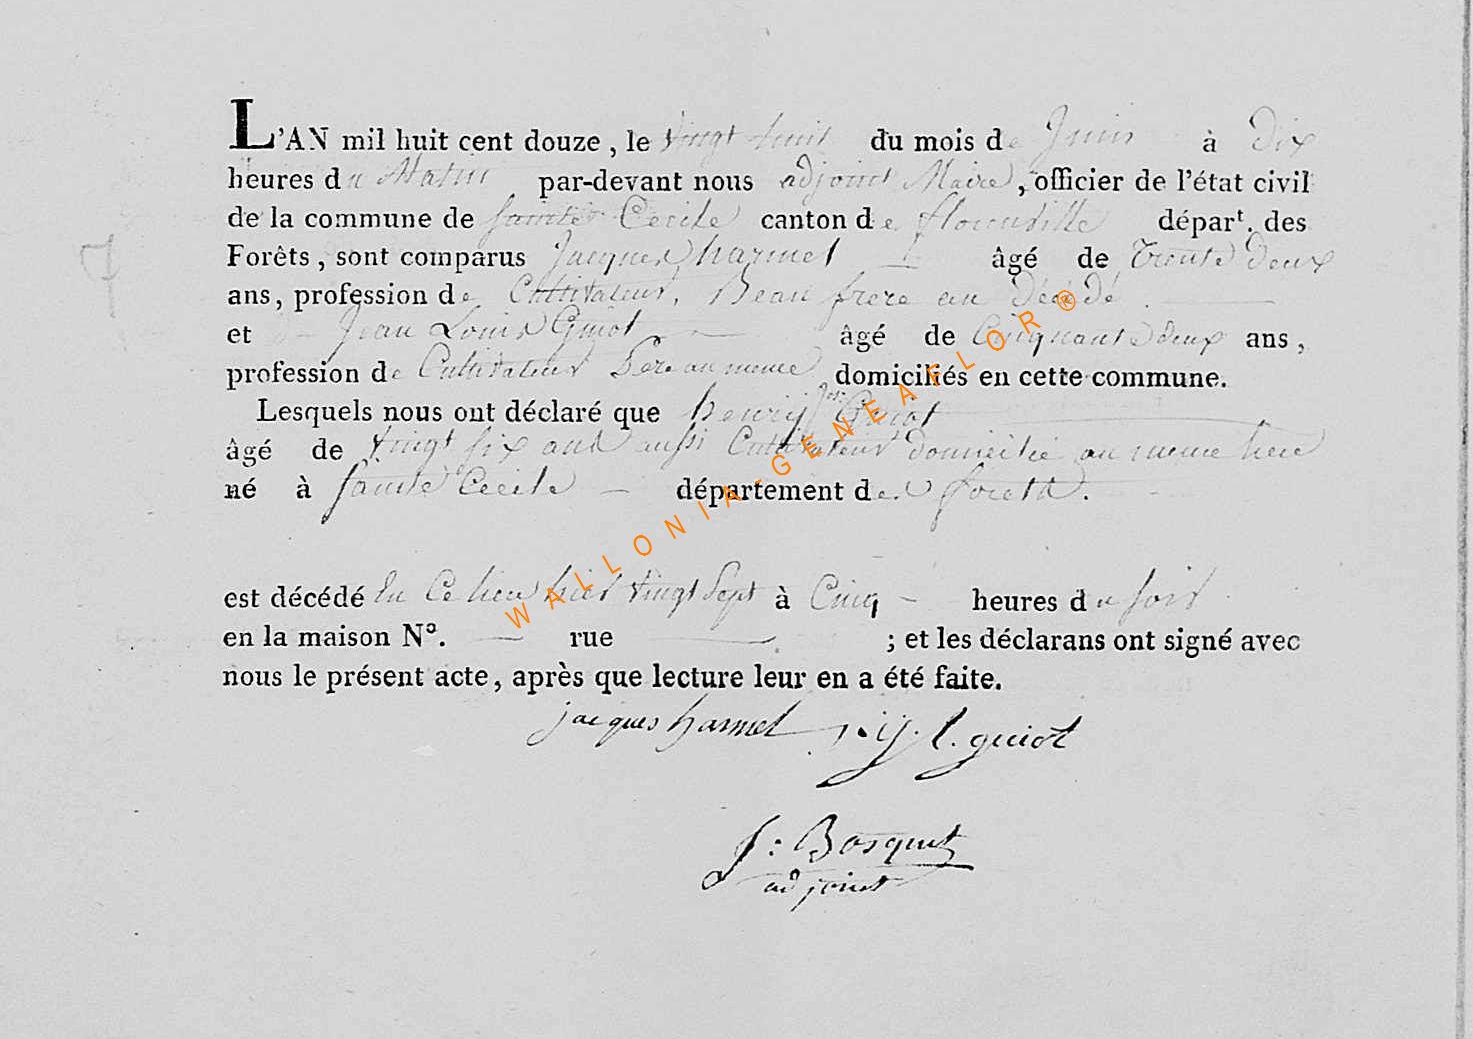 L'AN mil huit cent douze, le vingt huit du mois de Juin à Dix
heures du Matin par-devant nous adjoint Maire, officier de l'état civil
de la commune de Sainte Cecile canton de florenville départ. des
Forêts, sont comparus Jacques harmel âgé de trente deux
ans, profession de Cultivateur, Beau frere au Décedé
et Jean Louis Guiot âgé de Cinquante deux ans,
profession de Cultivateur Pere au meme domiciliés en cette commune.
Lesquels nous ont déclaré que henry Jos. Guiot
âgé de vingt six ans aussi Cultivateur domicilié au meme lieu
né à Sainte Cecile département des forets.
est décédé en Ce lieu hier vingt Sept à Cinq heures du soir
en la maison N°. rue ; et les déclarans ont signé avec
nous le présent acte, après que lecture leur en a été faite.
jacques harmel j. l. guiot
J: Bosquet
adjoint
7
WALLONIA-GENEAFLOR®